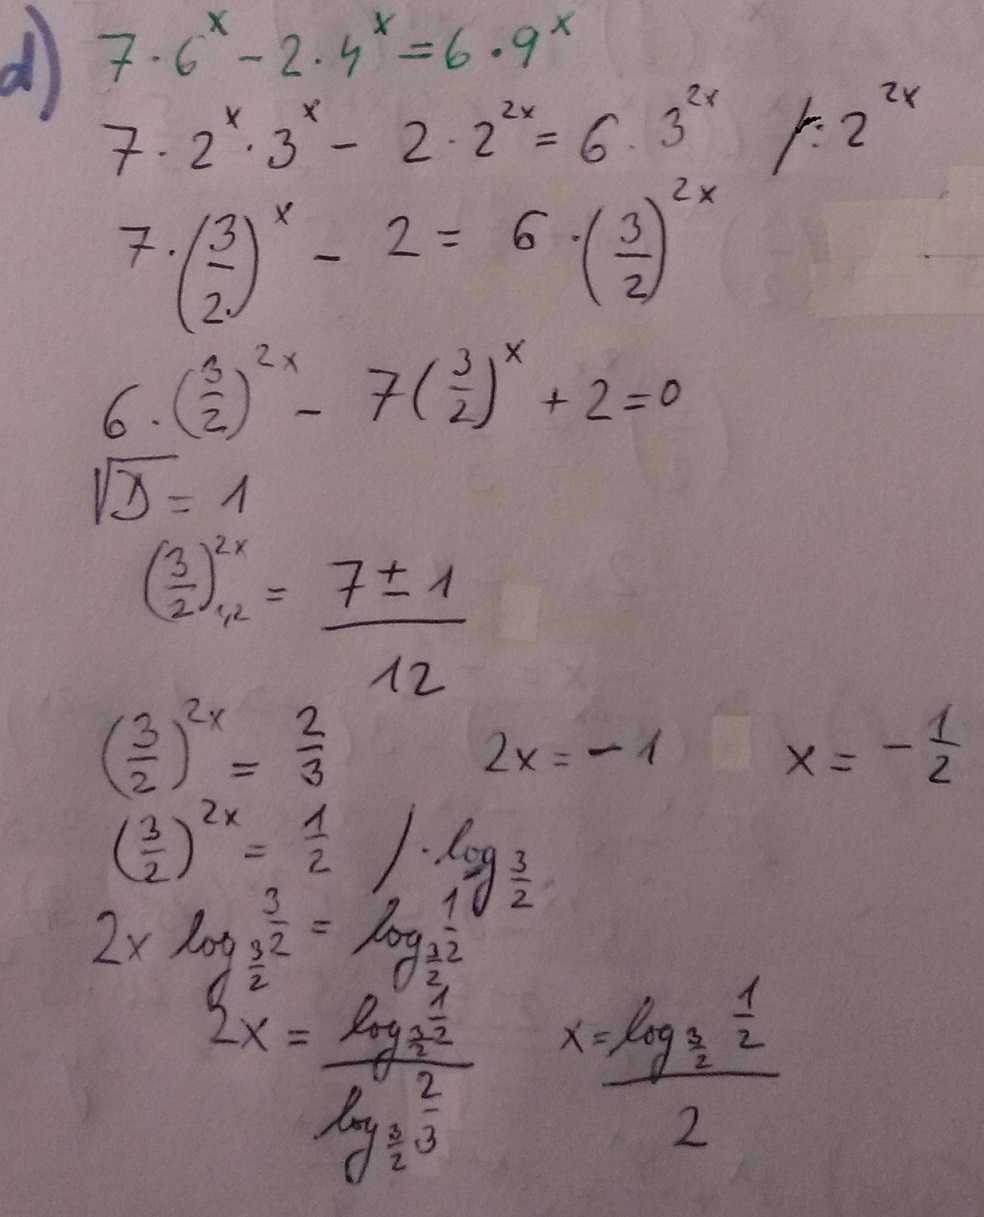 d) 7·6^x - 2·4^x = 6·9^x
7·2^x·3^x - 2·2^2x = 6·3^2x /:2^2x
7·(3/2)^x - 2 = 6·(3/2)^2x
6·(3/2)^2x - 7(3/2)^x + 2 = 0
√D = 1
(3/2)^2x 1,2 = 7±1/12
(3/2)^2x = 2/3 2x = -1 x = -1/2
(3/2)^2x = 1/2 /·log 3/2
2x log_3/2 3/2 = log_3/2 1/2
2x = log_3/2 1/2 / log_3/2 2/3 x = log_3/2 1/2 / 2